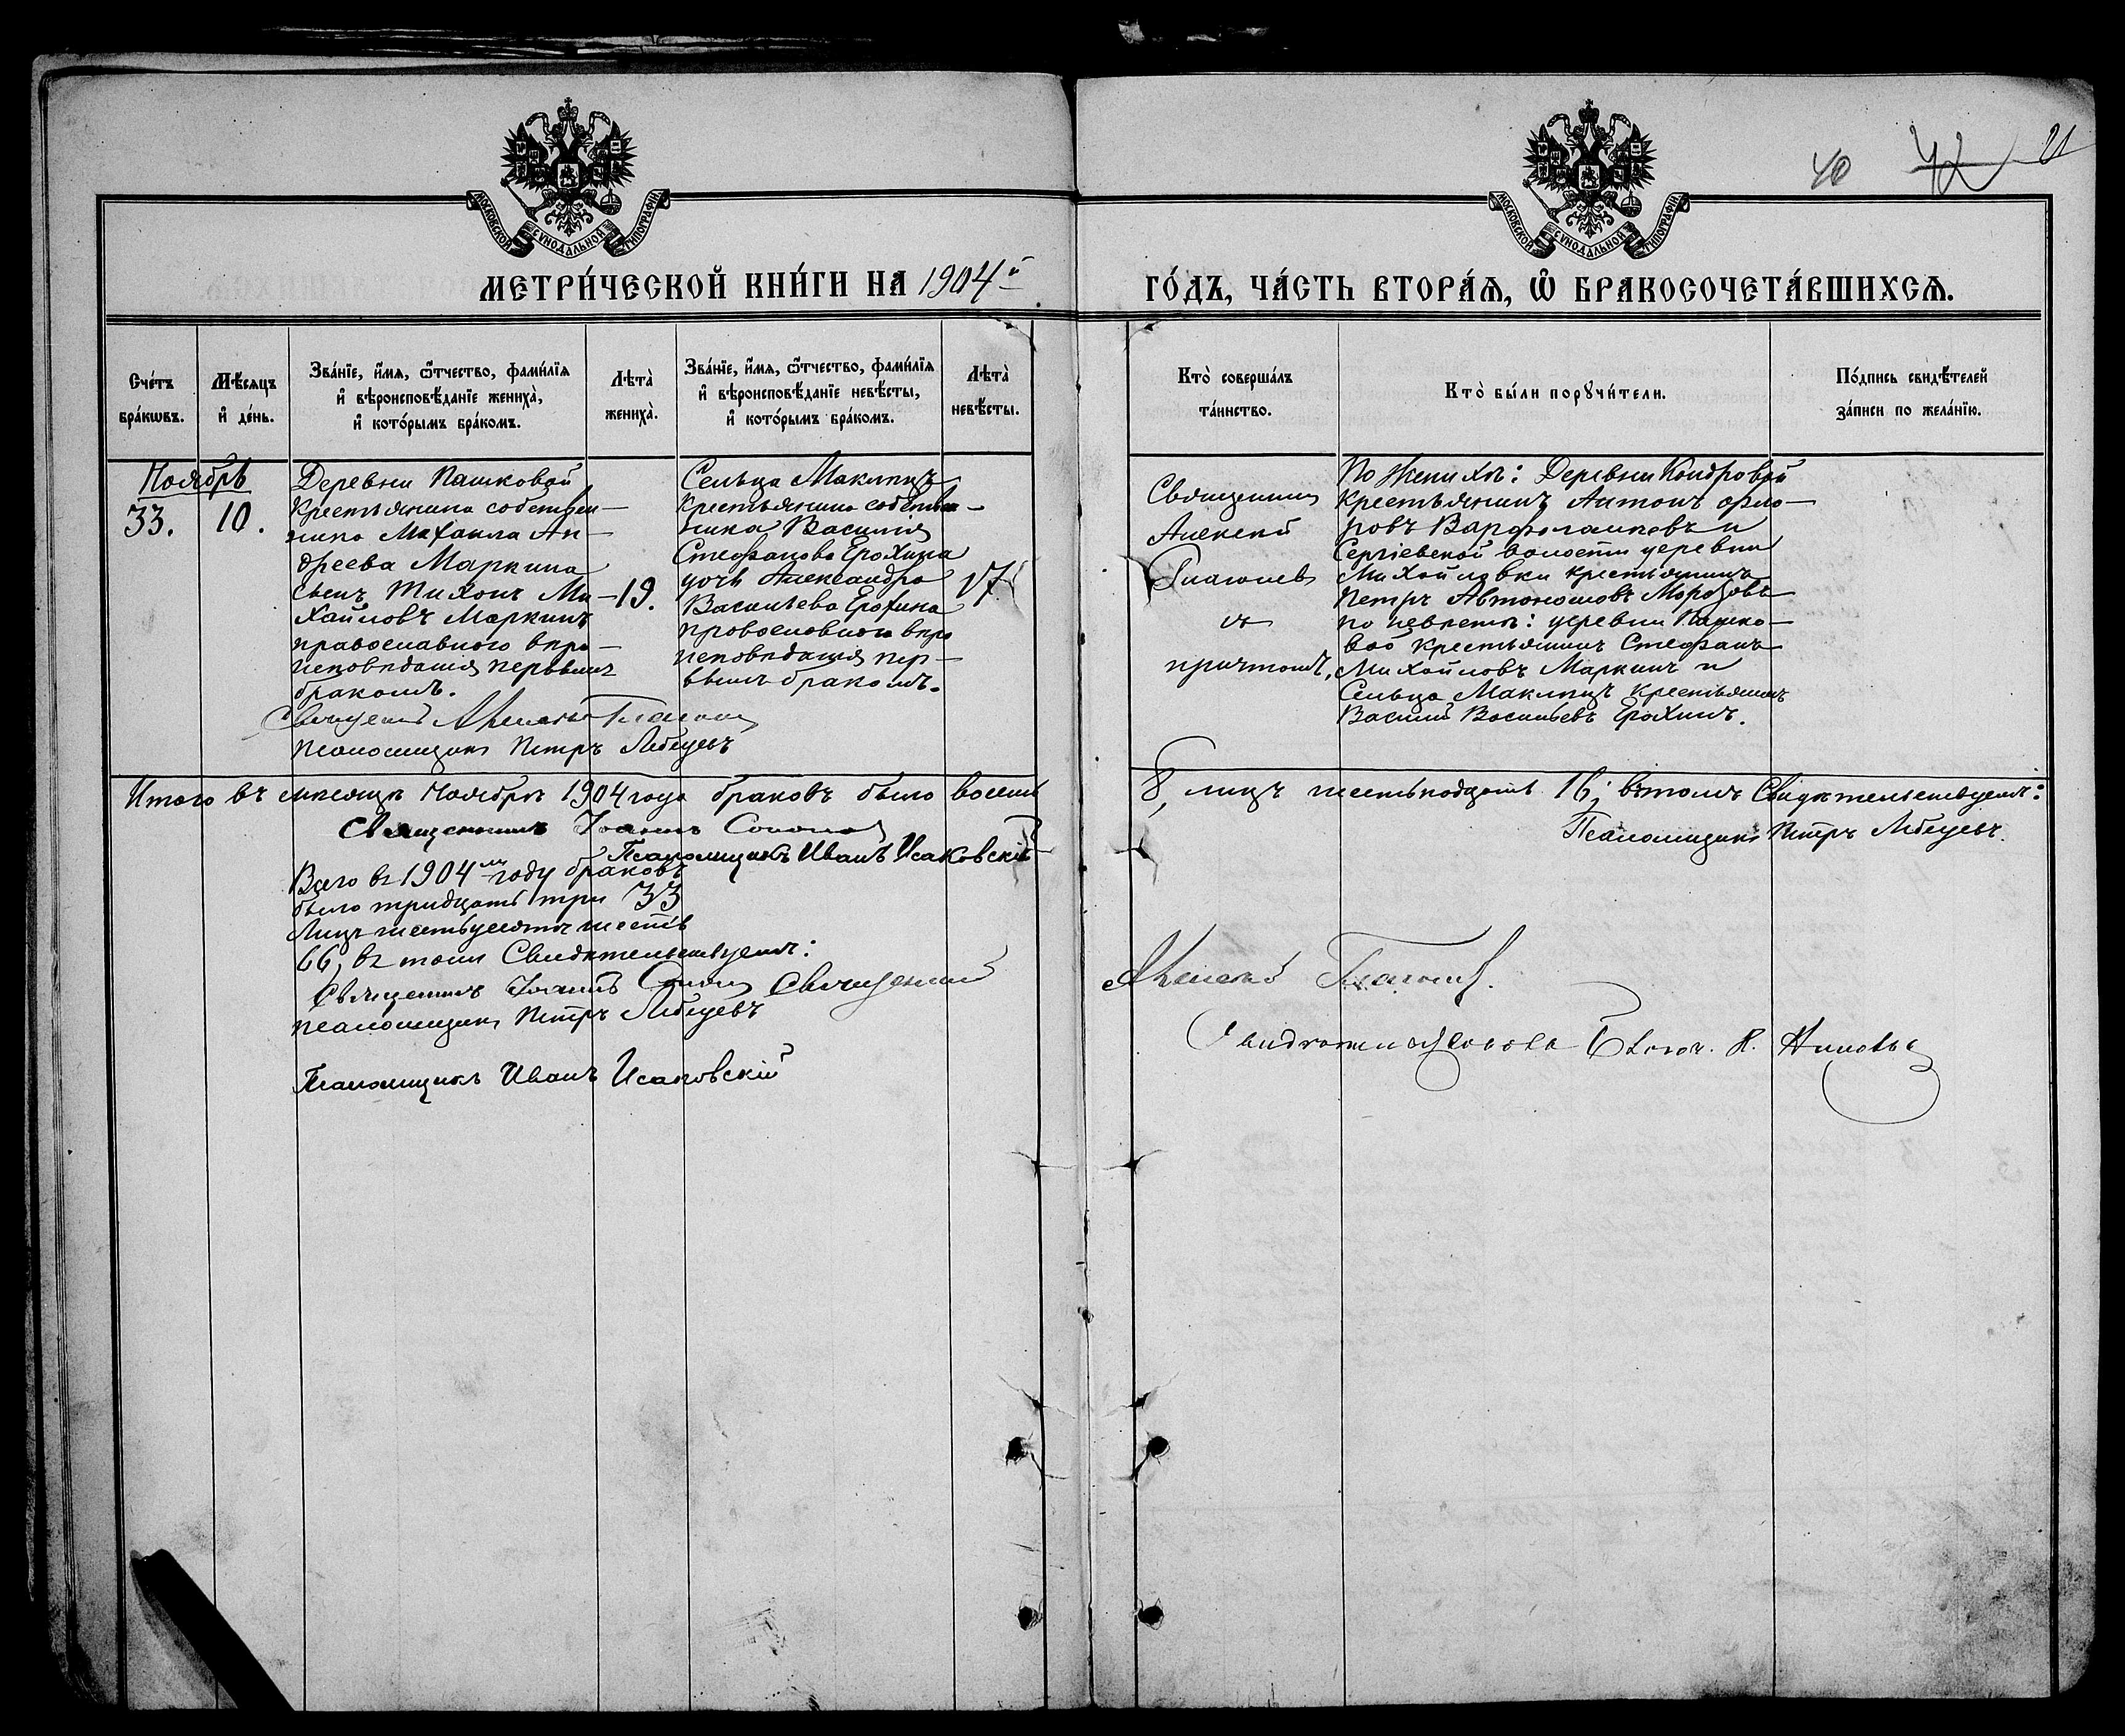 40 42 21
МОСКОВСКОЙ СѴНОДАЛЬНОЙ ТИПОГРАФІИ
МОСКОВСКОЙ СѴНОДАЛЬНОЙ ТИПОГРАФІИ
МЕТРИ́ЧЕСКОЙ КНИ́ГИ НА 1904й
ГО́ДЪ, ЧА́СТЬ ВТОРА́Ѧ, Ѽ БРАКОСОЧЕТА́ВШИХСѦ.
Сче́тъ бра́кѡвъ.
Мѣ́сяцъ и҆ де́нь.
Зва́нїе, и҆́мя, ѻ҆́тчество, фами́лїя
и҆ вѣроисповѣ́данїе жениха̀,
и҆ кото́рымъ бра́комъ.
Лѣта̀ жениха̀.
Зва́нїе, и҆́мя, ѻ҆́тчество, фами́лїя
и҆ вѣроисповѣ́данїе невѣ́сты,
и҆ кото́рымъ бра́комъ.
Лѣта̀ невѣ́сты.
Кто̀ соверша́лъ
та́инство.
Кто̀ бы́ли порꙋчи́тели.
По́дпись свидѣ́телей
за́писи по жела́нїю.
Ноябрь
33. 10.
Деревни Пашковой
крестьянина собствен-
ника Михаила Ан-
дреева Маркина
сынъ Тихонъ Ми-
хайловъ Маркинъ
православного вѣро-
исповѣданія первымъ
бракомъ.
19.
Сельца Маклицъ
крестьянина собствен-
ника Василія
Стефанова Ерохина
дочь Александра
Васильева Ерохина
православного вѣро
исповѣданія пер-
вымъ бракомъ.
17
Священникъ
Алексей
Глаголев
и
причтомъ,
По женихѣ: Деревни Кондровой
крестьянинъ Антонъ Фло-
ровъ Варфоломеевъ и
Сергіевской волости деревни
Михайловки крестьянинъ
Петръ Автономовъ Морозовъ
по невѣсте: деревни Пашко-
вой крестьянинъ Стефанъ
Михайловъ Маркинъ и
Сельца Маклицъ крестьянинъ
Василій Васильевъ Ерохинъ.
Священ Алексей Глаголев
Псаломщикъ Петръ Лебедевъ
Итого въ мѣсяцѣ Ноябрѣ 1904 года браковъ было восемь
8, лицъ шестьнадцать 16; въ томъ Свидѣтельствуемъ:
Священникъ Іоаннъ Соколов
Псаломщикъ Петръ Лебедевъ.
Псаломщикъ Иванъ Исаковскій
Всего въ 1904 мъ году браковъ
было тридцать три 33
Лицъ шестьдесятъ шесть
66, въ томъ Свидѣтельствуемъ:
Священникъ Іоаннъ Соколов Священникъ
Алексей Глаголев.
Псаломщикъ Петръ Лебедевъ
Свидѣтельствовалъ
Псаломщикъ Иванъ Исаковскій